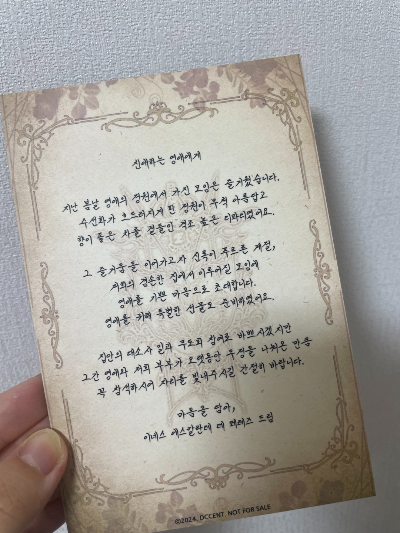 친애하는 영애에게
지난 봄날 영애의 정원에서 가진 모임은 즐거웠습니다.
수선화가 흐드러지게 핀 정원이 무척 아름답고
향이 좋은 차를 곁들인 격조 높은 티파티였어요.
그 즐거움을 이어가고자 신록이 푸르른 계절,
저희의 겸손한 집에서 이루어질 모임에
영애를 기쁜 마음으로 초대합니다.
영애를 위해 특별한 선물도 준비하였어요.
집안의 대소사 일과 무도회 참여로 바쁘시겠지만
그간 영애와 저희 부부가 오랫동안 우정을 나눠온 만큼
꼭 참석하시어 자리를 빛내주시길 간절히 바랍니다.
마음을 담아,
이네스 에스칼란테 데 페레즈 드림
©2024. DCCENT. NOT FOR SALE